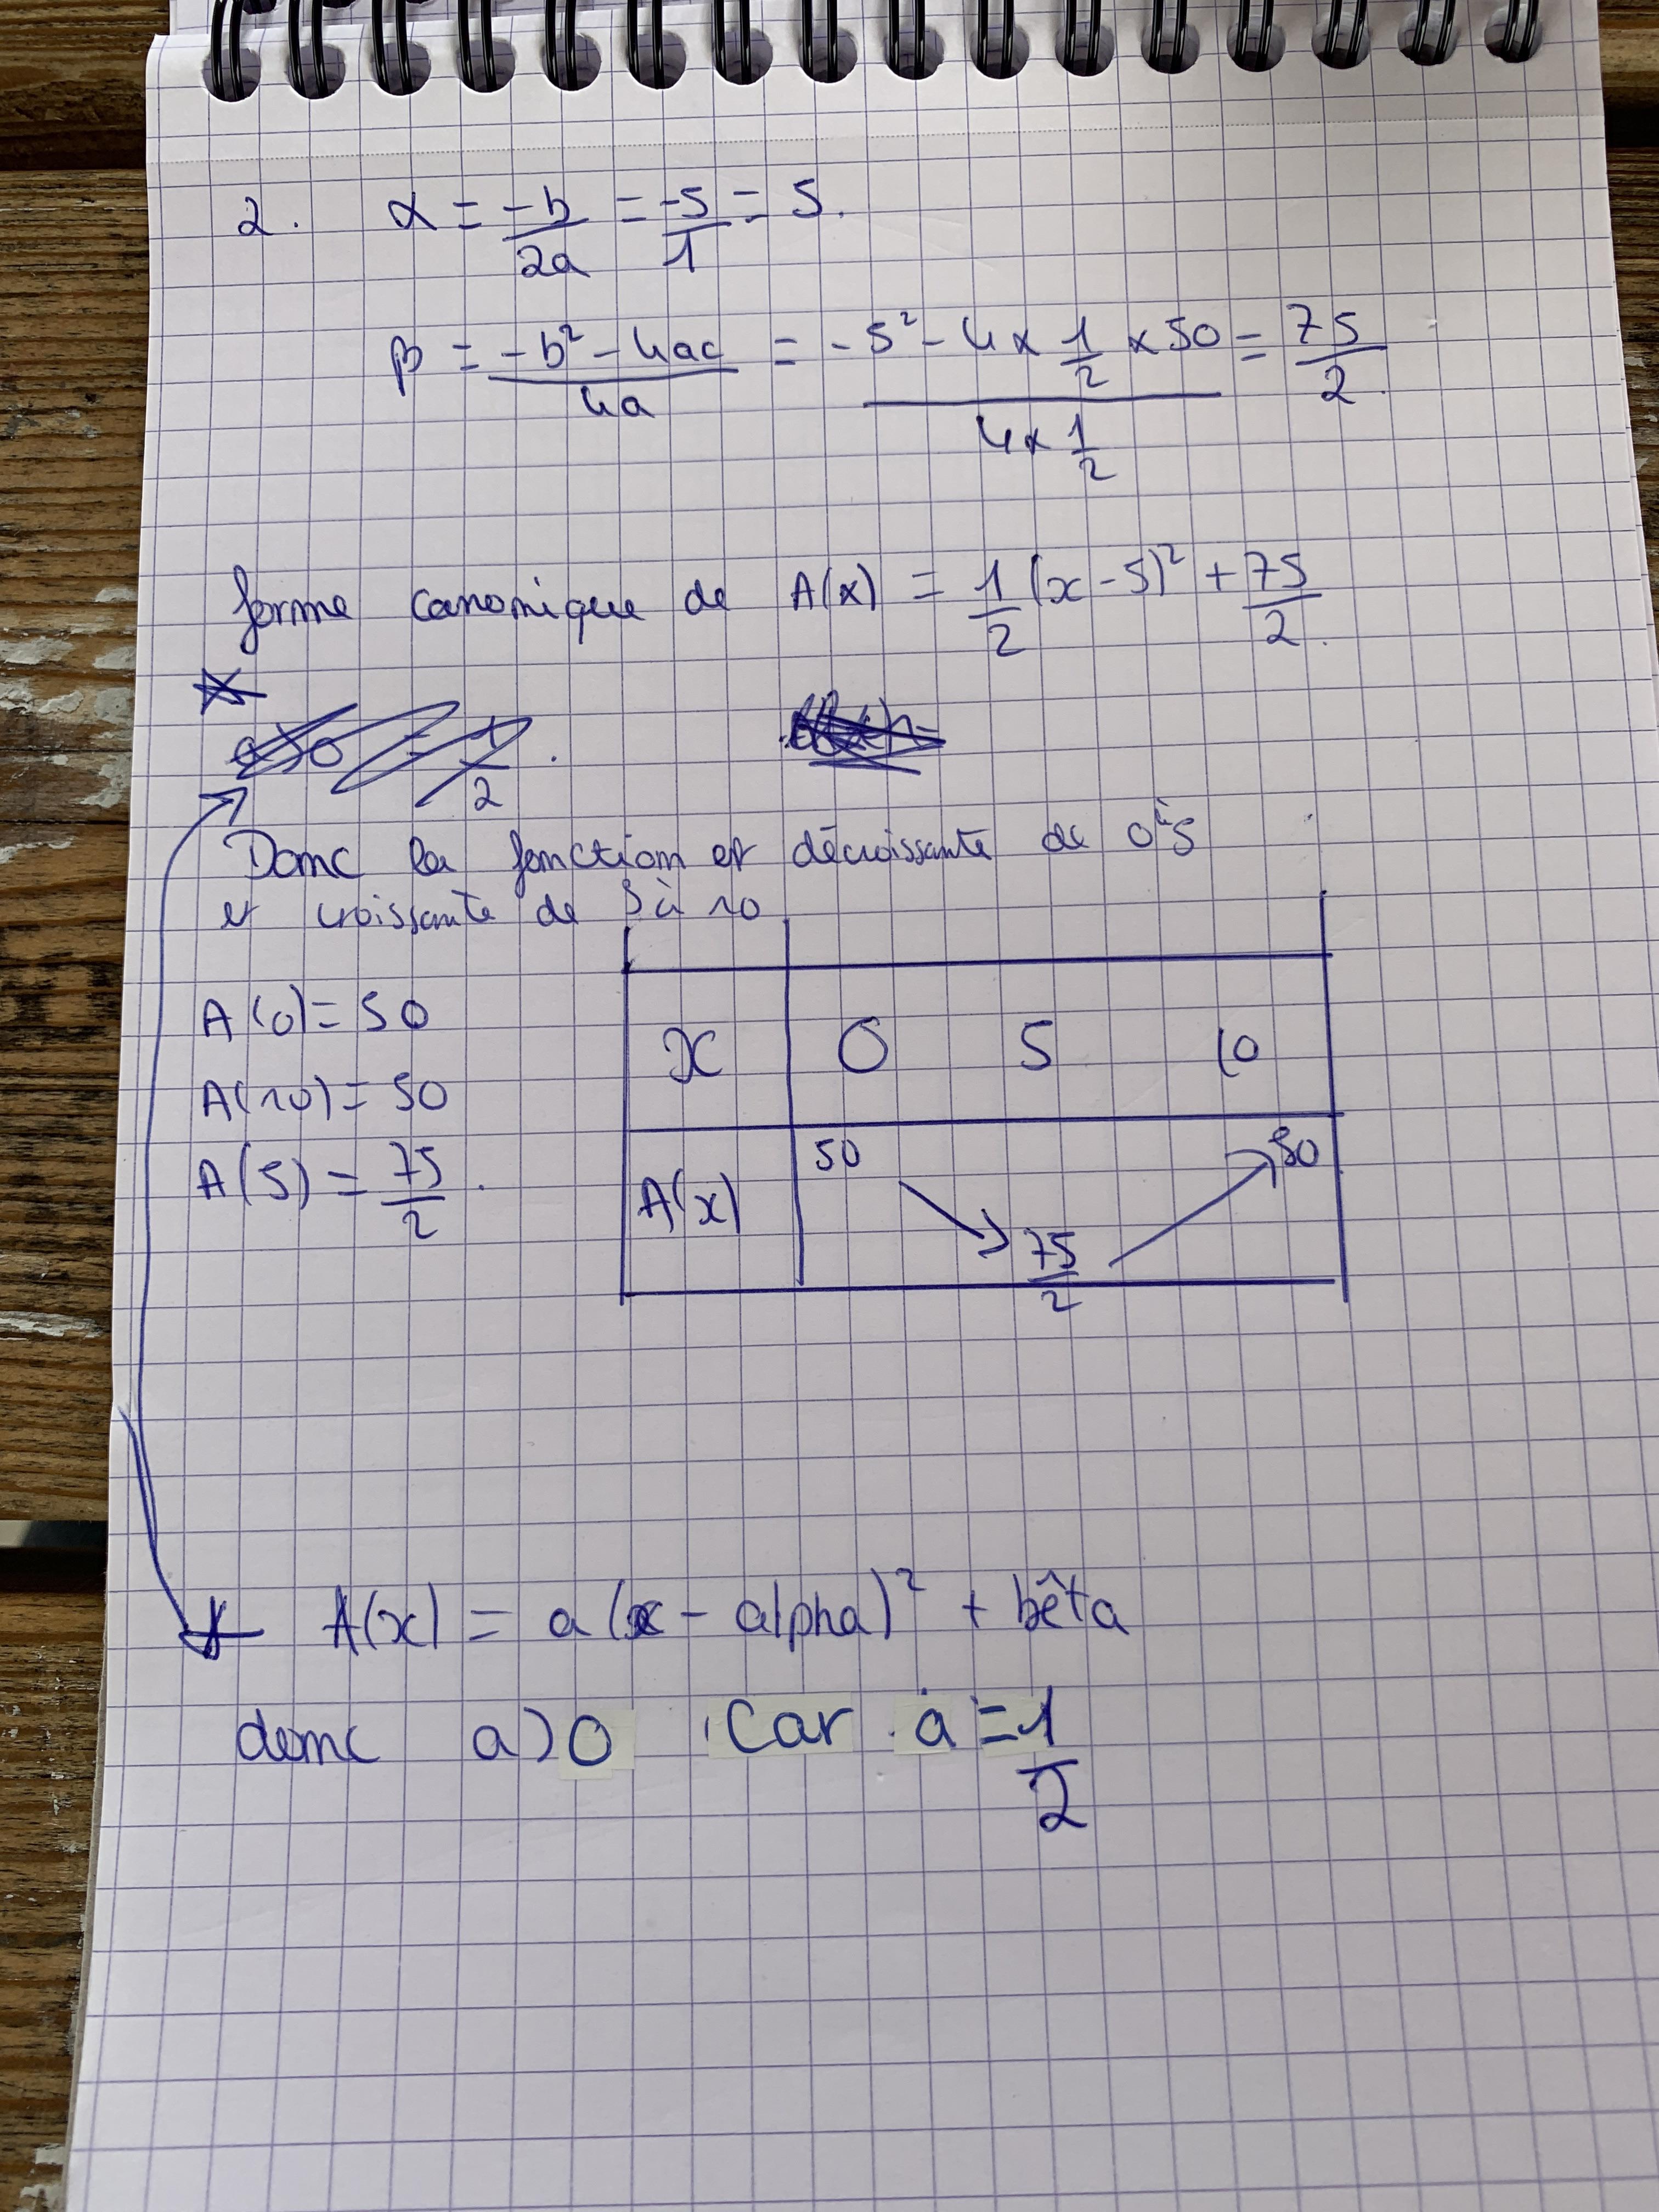 2. α = -b/2a = -5/1 = 5.
β = -b² - 4ac/4a = -5² - 4 x 1/2 x 50/4 x 1/2 = 75/2.
forme canonique de A(x) = 1/2 (x - 5)² + 75/2.
Donc la fonction est décroissante de 0 à 5
et croissante de 5 à 10
A(0) = 50
A(10) = 50
A(5) = 75/2.
x 0 5 10
A(x) 50 75/2 50
A(x) = a(x - alpha)² + bêta
donc a>0 Car a = 1/2